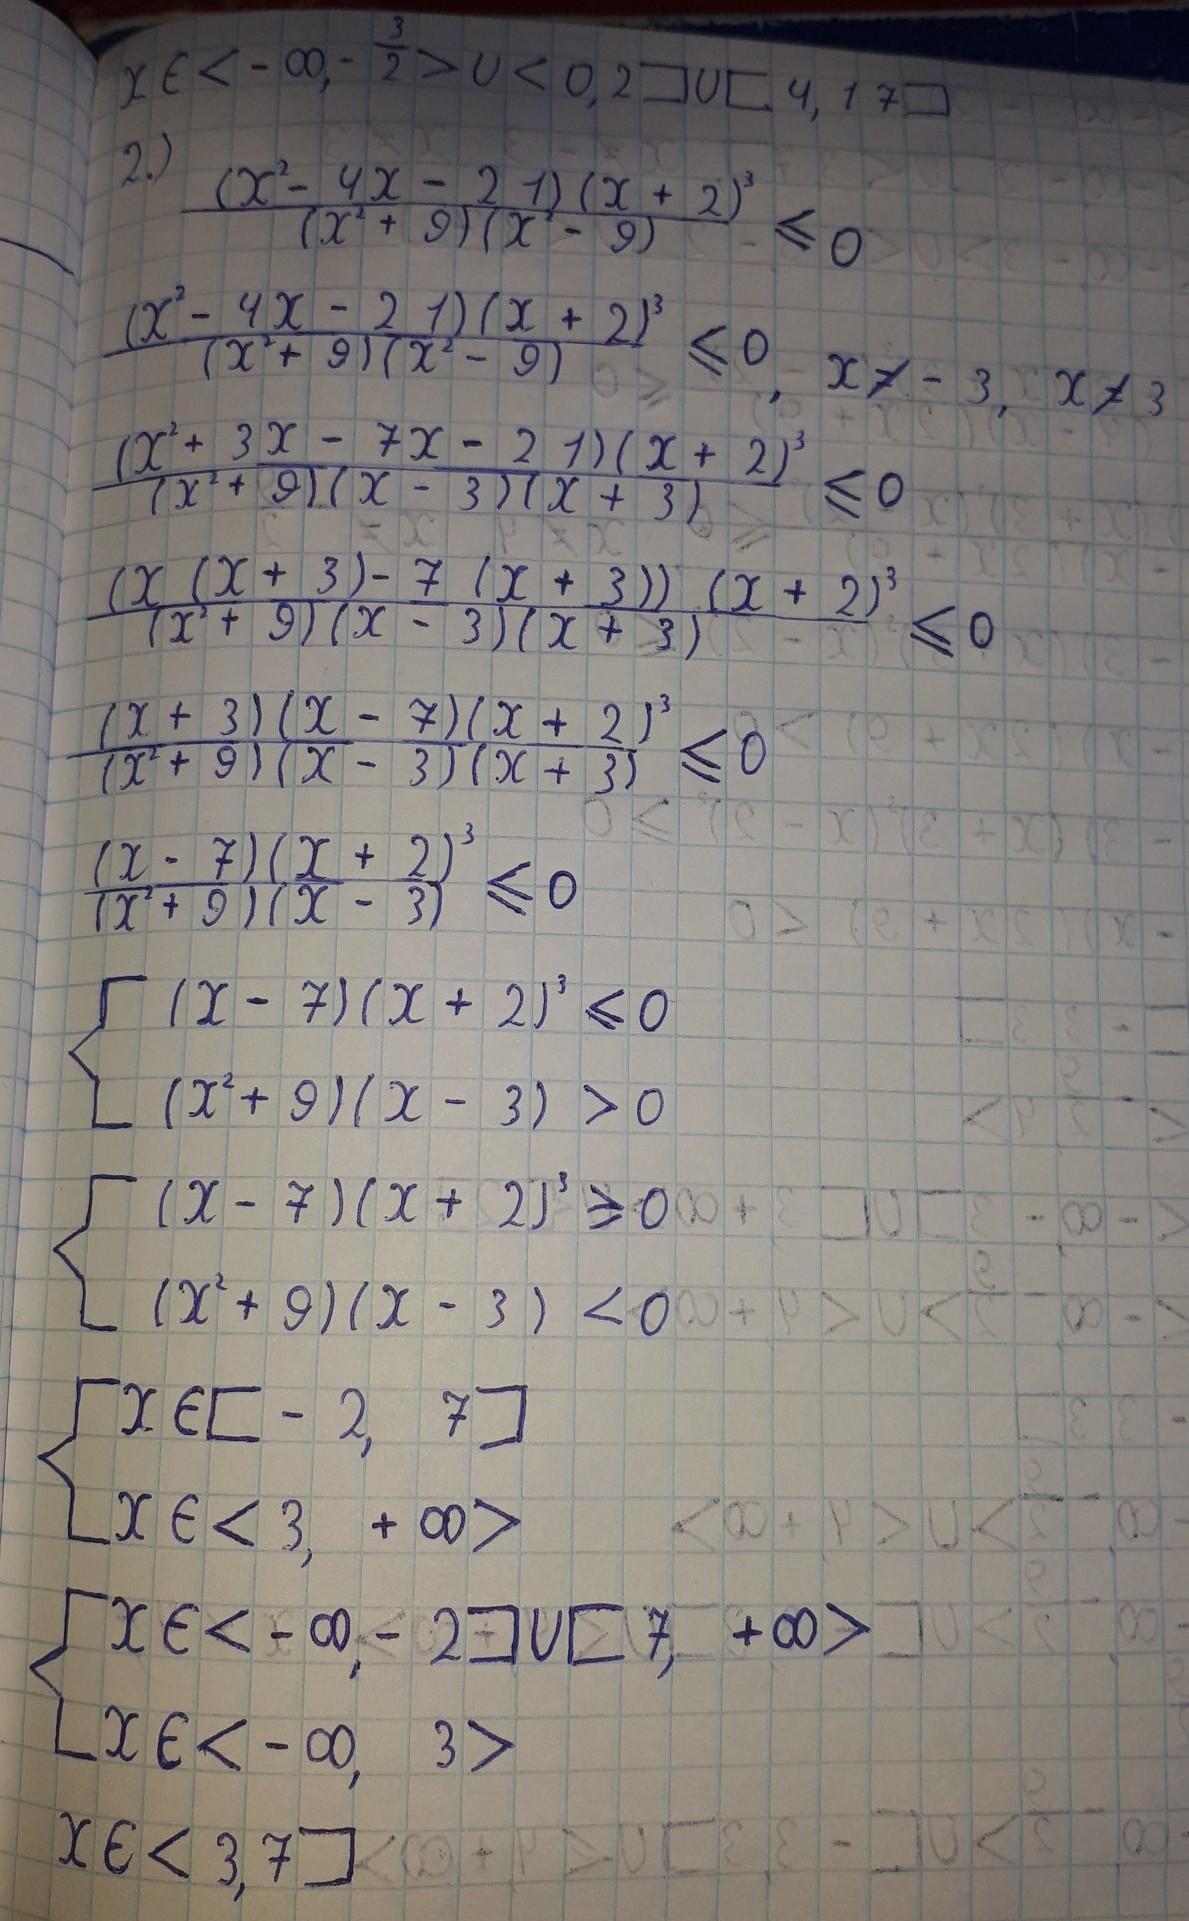 x ∈ < - ∞, - 3/2 > ∪ < 0, 2 ] ∪ [ 4, 17 ]
2.)
(x² - 4x - 21)(x + 2)³ / (x² + 9)(x² - 9) ≤ 0
(x² - 4x - 21)(x + 2)³ / (x² + 9)(x² - 9) ≤ 0, x ≠ - 3, x ≠ 3
(x² + 3x - 7x - 21)(x + 2)³ / (x² + 9)(x - 3)(x + 3) ≤ 0
(x (x + 3) - 7 (x + 3)) (x + 2)³ / (x² + 9)(x - 3)(x + 3) ≤ 0
(x + 3)(x - 7)(x + 2)³ / (x² + 9)(x - 3)(x + 3) ≤ 0
(x - 7)(x + 2)³ / (x² + 9)(x - 3) ≤ 0
(x - 7)(x + 2)³ ≤ 0
(x² + 9)(x - 3) > 0
(x - 7)(x + 2)³ ≥ 0
(x² + 9)(x - 3) < 0
x ∈ [ - 2, 7 ]
x ∈ < 3, + ∞ >
x ∈ < - ∞, - 2 ] ∪ [ 7, + ∞ >
x ∈ < - ∞, 3 >
x ∈ < 3, 7 ]